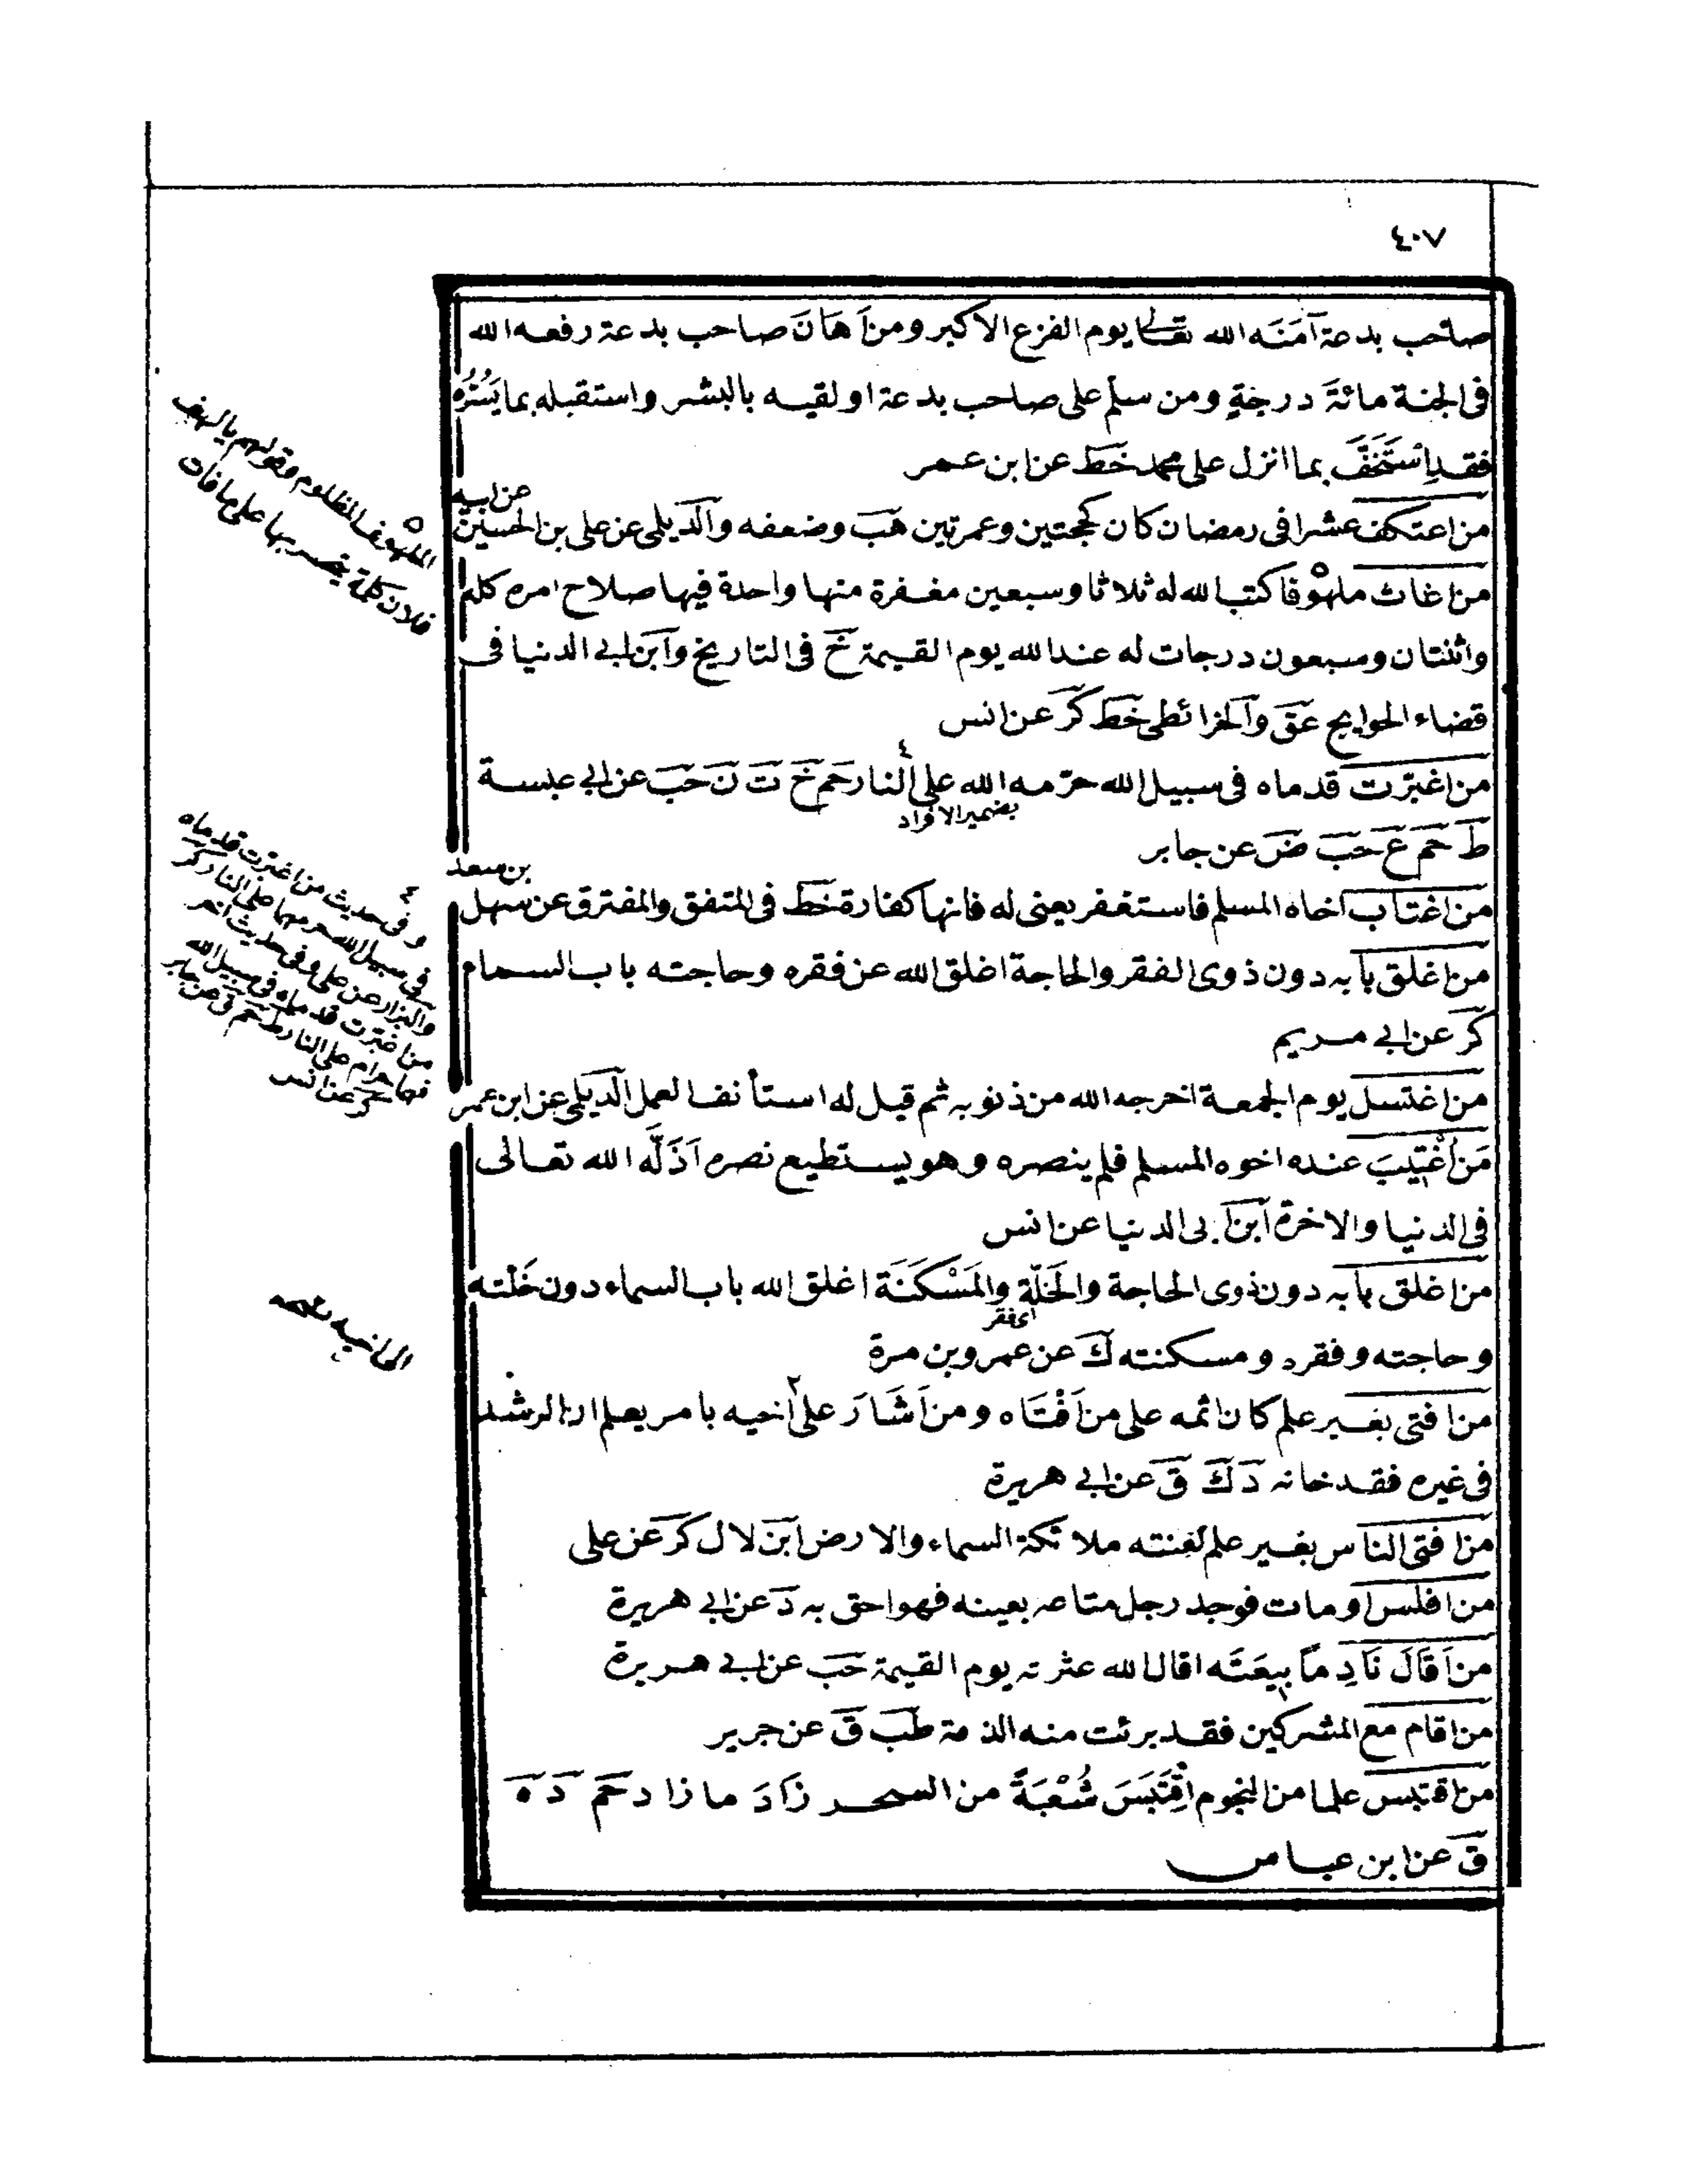 ٤٠٧
صاحب بدعة آمَنَه الله تعالى يوم الفزع الاكبر ومن اَهَانَ صاحب بدعة رفعه الله
فى الجنة مائة درجةٍ ومن سلّم على صاحب بدعة او لقيه بالبشر واستقبله بما يَسُرُّه
فقد اِسْتَخَفَّ بما انزل على محمد خط عن ابن عمر
من اعتكف عشرا فى رمضان كان كحجتين وعمرتين هب وضعفه والديلمى عن على بن الحسين
عن ابيه
من اغاث ملهوفا كتب الله له ثلاثا وسبعين مغفرة منها واحدة فيها صلاح امره كله
واثنتان وسبعون درجات له عند الله يوم القيمة خ فى التاريخ وابن ابى الدنيا فى
قضاء الحوايج عق والخرائطى خط كر عن انس
من اغبرّت قدماه فى سبيل الله حرّمه الله على النار حم خ ت ن حب عن ابى عبسة
بضمير الافراد
ط حم ع حب ض عن جابر
من اغتاب اخاه المسلم فاستغفر يعنى له فانها كفارة خط فى المتفق والمفترق عن سهل
بن سعد
من اغلق بابه دون ذوى الفقر والحاجة اغلق الله عن فقره وحاجته باب السماء
كر عن ابى مريم
من اغتسل يوم الجمعة اخرجه الله من ذنوبه ثم قيل له استأنف العمل الديلمى عن ابن عمر
مَن اُغْتِيبَ عنده اخوه المسلم فلم ينصره وهو يستطيع نصره اَذَلَّه الله تعالى
فى الدنيا والاخرة ابن ابى الدنيا عن انس
من اغلق بابه دون ذوى الحاجة والخَلّة والمَسْكَنَة اغلق الله باب السماء دون خَلّته
اى فقر
وحاجته وفقره ومسكنته ك عن عمرو بن مرة
من افتى بغير علم كان اثمه على من اَفْتَاه ومن اَشَارَ على اخيه بامر يعلم ان الرشد
فى غيره فقد خانه د ك ق عن ابى هريرة
من افتى الناس بغير علم لعنته ملائكة السماء والارض ابن لال كر عن على
من افلس او مات فوجد رجل متاعه بعينه فهو احق به د عن ابى هريرة
من اَقَالَ نَادِمًا بِيعَتَه اقال الله عثرته يوم القيمة حب عن ابى هريرة
من اقام مع المشركين فقد برئت منه الذمة طب ق عن جرير
من اقتبس علما من النجوم اِقْتَبَسَ شُعْبَةً من السحر زَادَ ما زاد حم د ه
ق عن ابن عباس
الملهوف المظلوم وقولهم يا لهف
فلان كلمة يتحسر بها على ما فات
وفى حديث من اغبرت قدماه
فى سبيل الله حرمها على النار كر
والبزار عن على وفى حديث اخر
من اغبرت قدماه فى سبيل الله
فهما حرام على النار ط حم ق عن جابر
كر عن انس